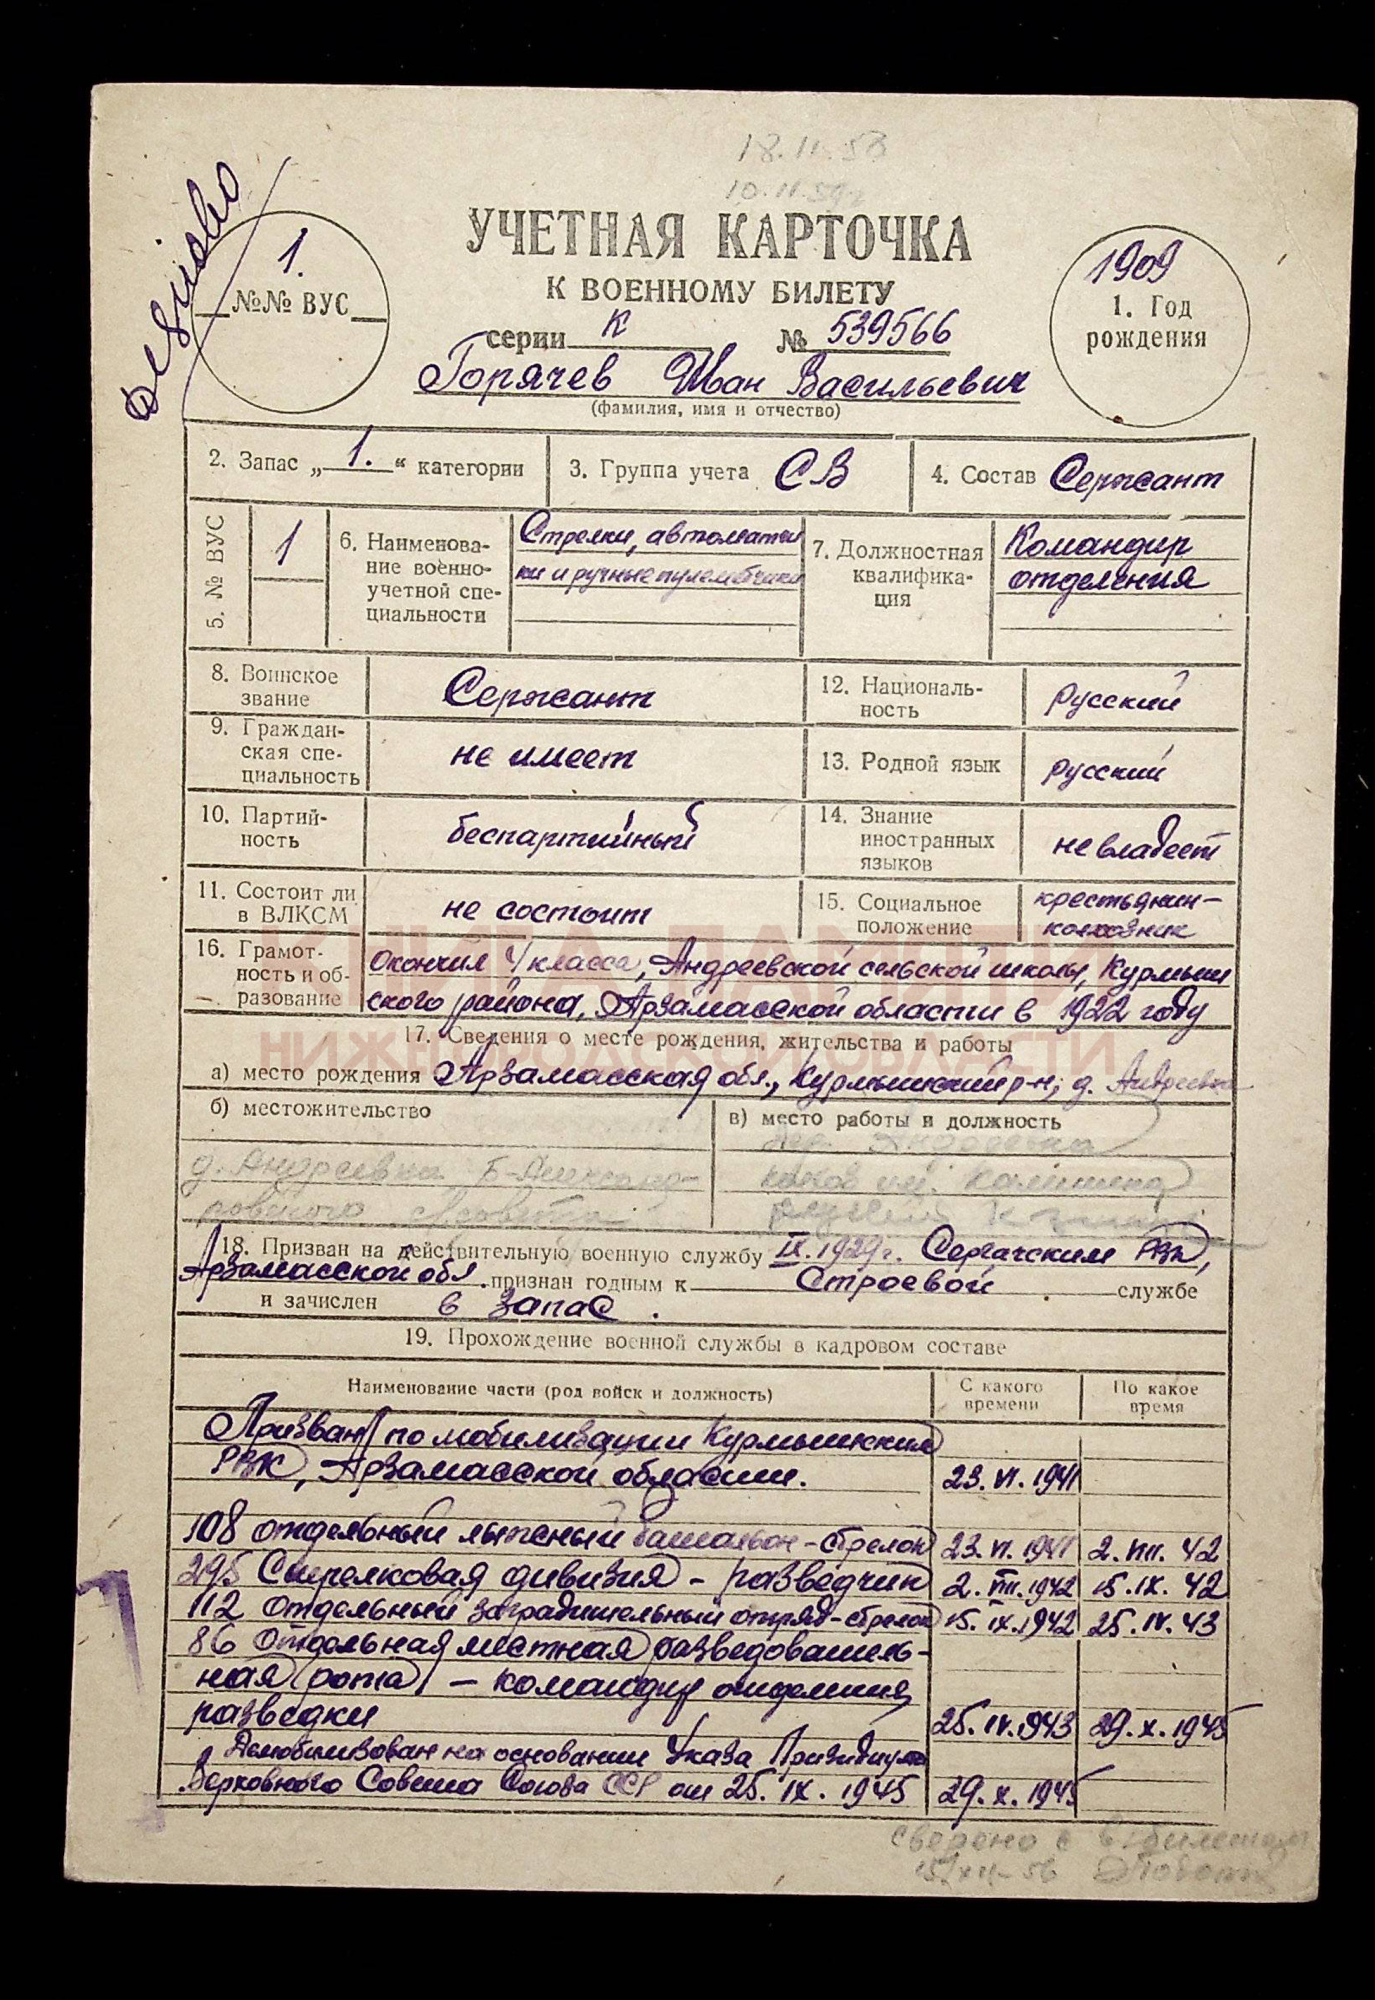 18.11.58
10.11.59г
УЧЕТНАЯ КАРТОЧКА
К ВОЕННОМУ БИЛЕТУ
1.
№№ ВУС
серии К № 539566
1909
1. Год
рождения
Горячев Иван Васильевич
(фамилия, имя и отчество)
2. Запас „1.“ категории
3. Группа учета СВ
4. Состав Сержант
5. № ВУС
1
6. Наименова-
ние военно-
учетной спе-
циальности
Стрелки, автоматчи
ки и ручные пулеметчики
7. Должностная
квалифика-
ция
Командир
отделения
8. Воинское
звание
Сержант
12. Националь-
ность
Русский
9. Граждан-
ская спе-
циальность
не имеет
13. Родной язык
русский
10. Партий-
ность
беспартийный
14. Знание
иностранных
языков
не владеет
11. Состоит ли
в ВЛКСМ
не состоит
15. Социальное
положение
крестьянин-
колхозник
16. Грамот-
ность и об-
разование
Окончил 4 класса, Андреевской сельской школы, Курмыш
ского района, Арзамасской области в 1922 году
КНИГА ПАМЯТИ
НИЖЕГОРОДСКОЙ ОБЛАСТИ
17. Сведения о месте рождения, жительства и работы
а) место рождения Арзамасская обл., Курмышский р-н, д. Андреевка
б) местожительство
д. Андреевка Б-Александ-
ровского с/совета
в) место работы и должность
дер. Андреевка
колхоз им. Калинина
18. Призван на действительную военную службу IX.1929 г. Сергачским РВК,
Арзамасской обл. признан годным к Строевой службе
и зачислен в запас.
19. Прохождение военной службы в кадровом составе
Наименование части (род войск и должность)
С какого
времени
По какое
время
Призван по мобилизации Курмышским
РВК, Арзамасской области. 23.VI.1941
108 отдельный лыжный батальон - стрелок 23.VI.1941 2.VIII.42
295 Стрелковая дивизия - разведчик 2.VIII.1942 15.IX.42
112 отдельный заградительный отряд - стрелок 15.IX.1942 25.IV.43
86 отдельная местная разведователь-
ная рота - командир отделения
разведки 25.IV.1943 29.X.1945
Демобилизован на основании Указа Призидиума
Верховного Совета Союза ССР от 25.IX.1945 29.X.1945
сверено с в/билетом